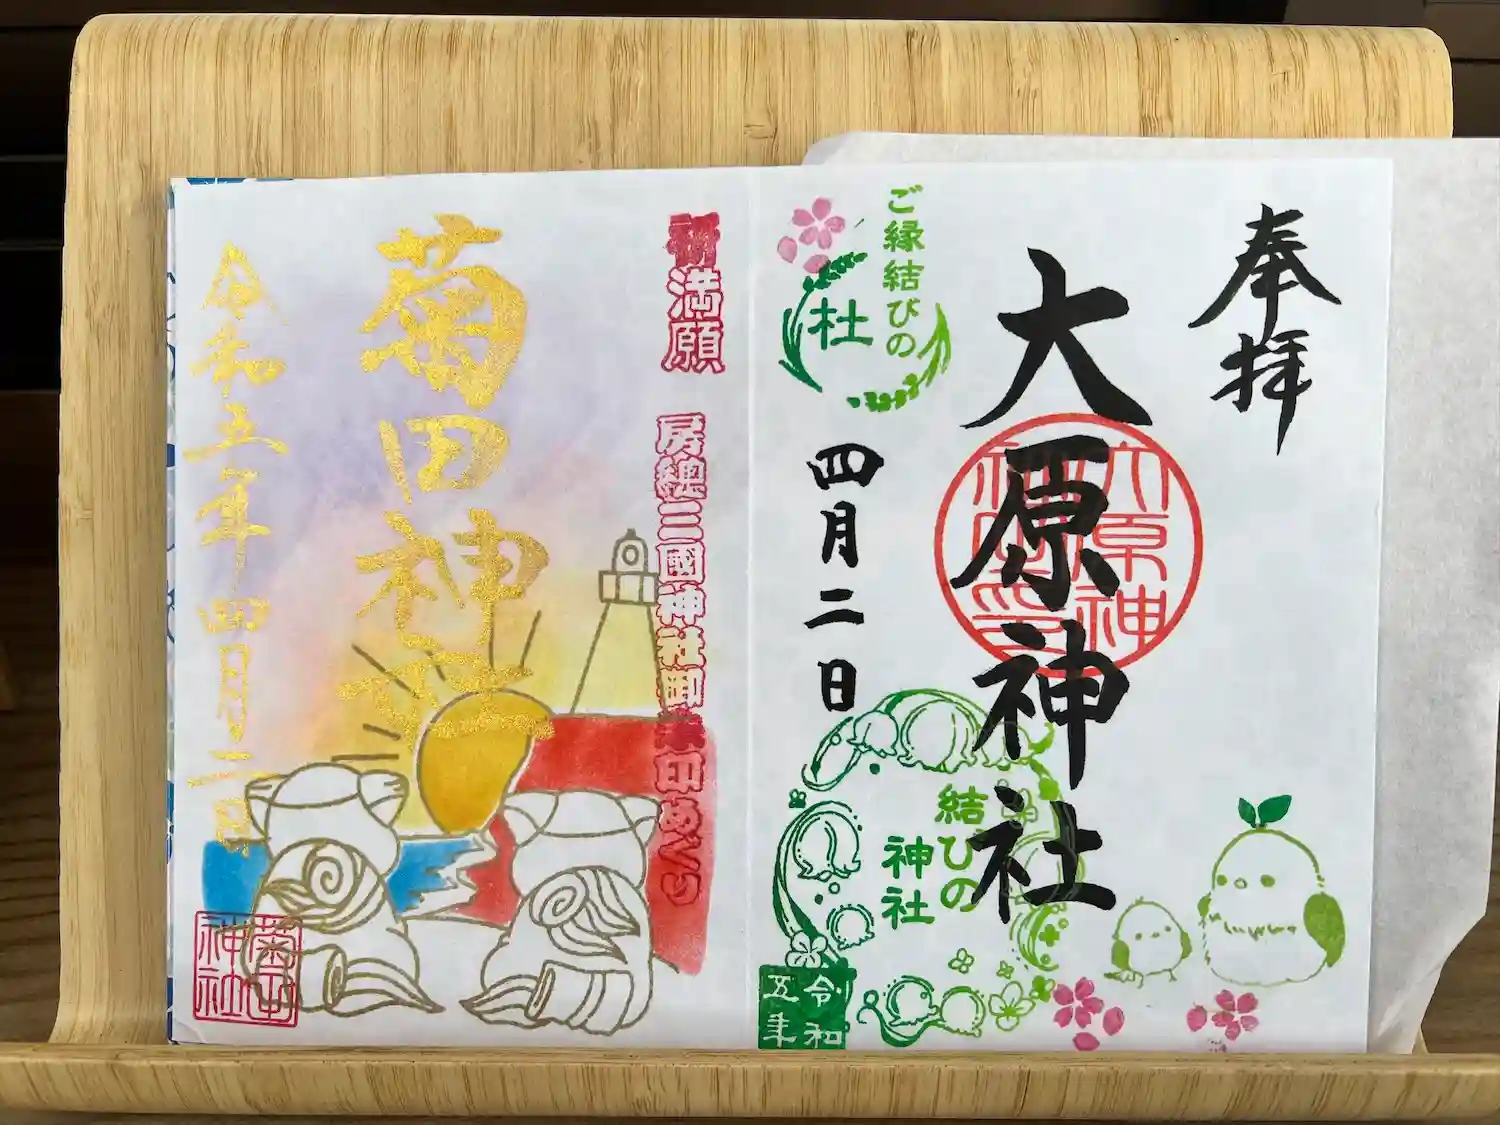 奉拝
大原神社
大原神社之印
ご縁結びの
杜
四月二日
結びの
神社
令和
五年
祈満願 房総三國神社御朱印めぐり
菊田神社
令和五年四月二日
菊田
神社